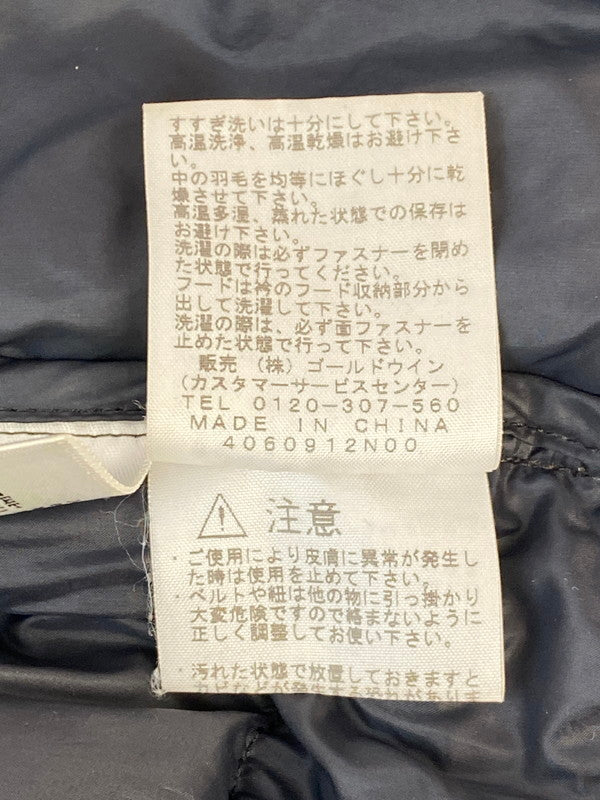 すすぎ洗いは十分にして下さい。
高温洗浄、高温乾燥はお避け下さ
い。
中の羽毛を均等にほぐし十分に乾
燥させて下さい。
高温多湿、蒸れた状態での保存は
お避け下さい。
洗濯の際は必ずファスナーを閉め
た状態で行ってください。
フードは衿のフード収納部分から
出して洗濯して下さい。
洗濯の際は、必ず面ファスナーを
止めた状態で行って下さい。
販売 (株) ゴールドウイン
(カスタマーサービスセンター)
TEL 0120-307-560
MADE IN CHINA
4060912N00
注意
・ご使用により皮膚に異常が発生し
た時は使用を止めて下さい。
・ベルトや紐は他の物に引っ掛かり
大変危険ですので絡まないように
正しく調整してお使い下さい。
・汚れた状態で放置しておきますと
カビなどが発生する恐れがありま